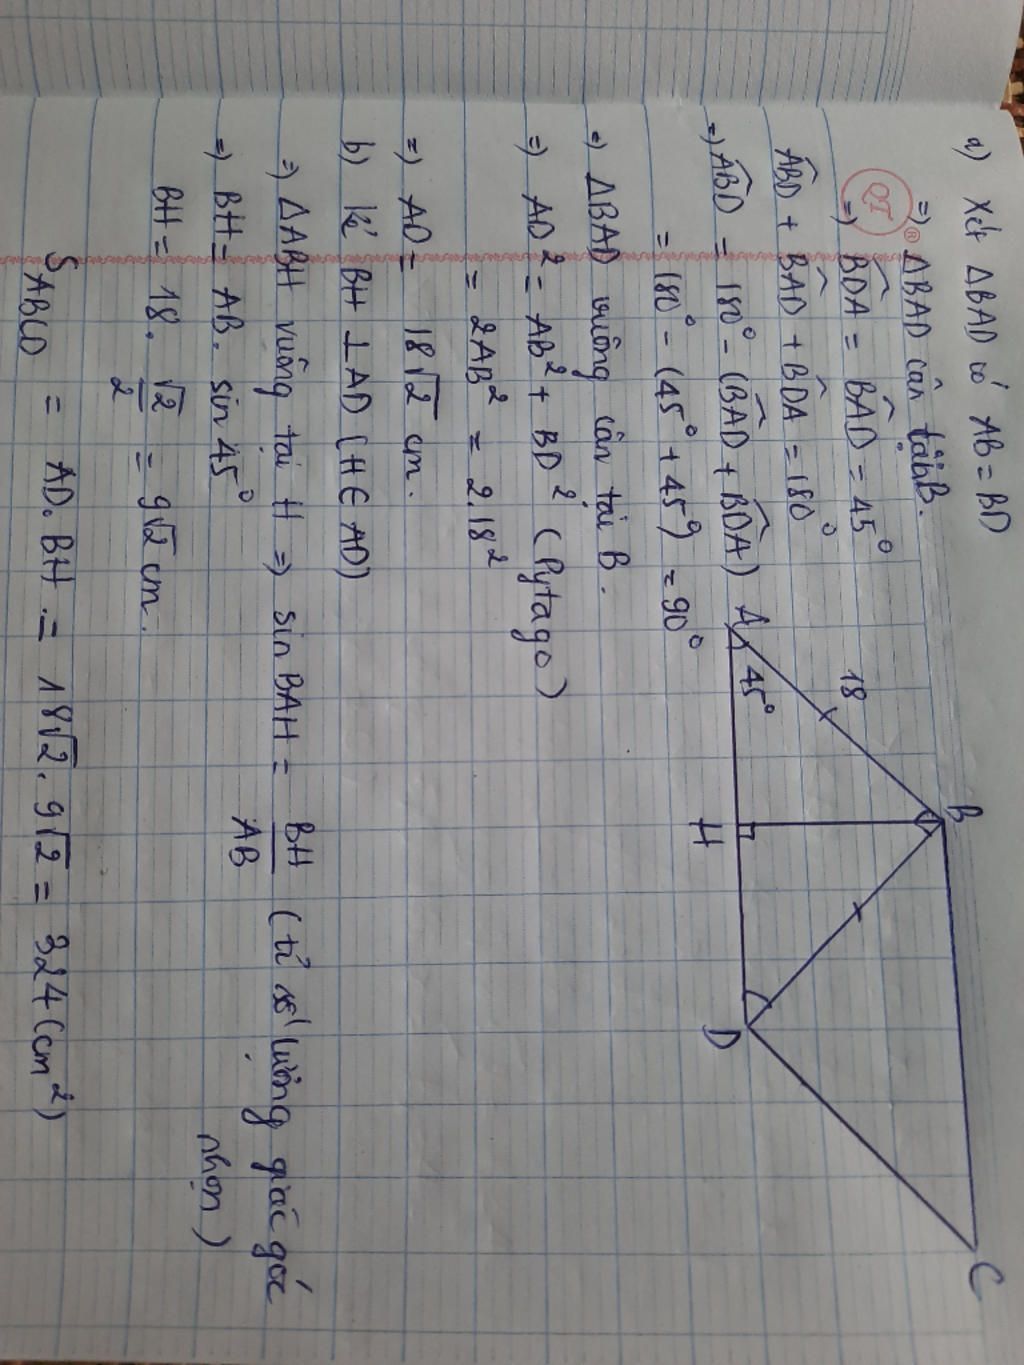 a) Xét ΔBAD có AB = BD
=) ΔBAD cân tại B.
=) BDA = BAD = 45°
ABD + BAD + BDA = 180°
=) ABD = 180° - (BAD + BDA)
= 180° - (45° + 45°) = 90°
=) ΔBAD vuông cân tại B.
=) AD² = AB² + BD² (Pytago)
= 2AB² = 2.18²
=) AD = 18√2 cm.
b) kẻ BH ⊥ AD (H ∈ AD)
=) ΔABH vuông tại H =) sin BAH = BH/AB (tỉ số lượng giác góc nhọn)
=) BH = AB. sin 45°
BH = 18. √2/2 = 9√2 cm.
S ABCD = AD. BH = 18√2. 9√2 = 324 (cm²)
B
C
18
A
45°
H
D
QT ®